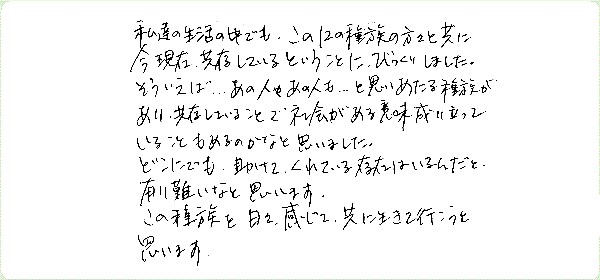 私達の生活の中でも、この12の種族の方々と共に
今現在、共存しているということに、びっくりしました。
そういえば…あの人もあの人も…と思いあたる種族が
あり、共存していることで社会がある意味成り立って
いることもあるのかなと思いました。
どこにでも、助けて、くれている存在はいるんだと、
有り難いなと思います。
この種族を日々、感じて、共に生きて行こうと
思います。